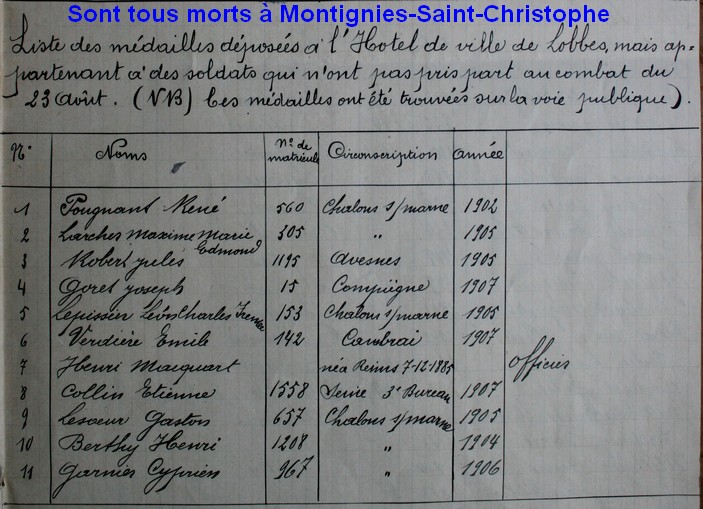 Sont tous morts à Montignies-Saint-Christophe
Liste des médailles déposées à l'Hotel de ville de Lobbes, mais ap=
partenant à des soldats qui n'ont pas pris part au combat du
23 Août. (NB) Ces médailles ont été trouvées sur la voie publique).
N° Noms N° de matricule Circonscription année
1 Pougnant René 560 Chalons s/marne 1902
2 Larcher Maxime Marie Edmond 305 " 1905
3 Robert jules 1195 avesnes 1905
4 Goret joseph 15 Compiègne 1907
5 Lepissier Léon Charles 153 Chalons s/marne 1905
6 Verdière Emile 142 Cambrai 1907
7 Henri Macquart né a Reims 7-12-1885 officier
8 Collin Etienne 1558 Seine 3e Bureau 1907
9 Lesoeur Gaston 657 Chalons s/marne 1905
10 Berthy Henri 1208 " 1904
11 Garnier Cyprien 967 " 1906